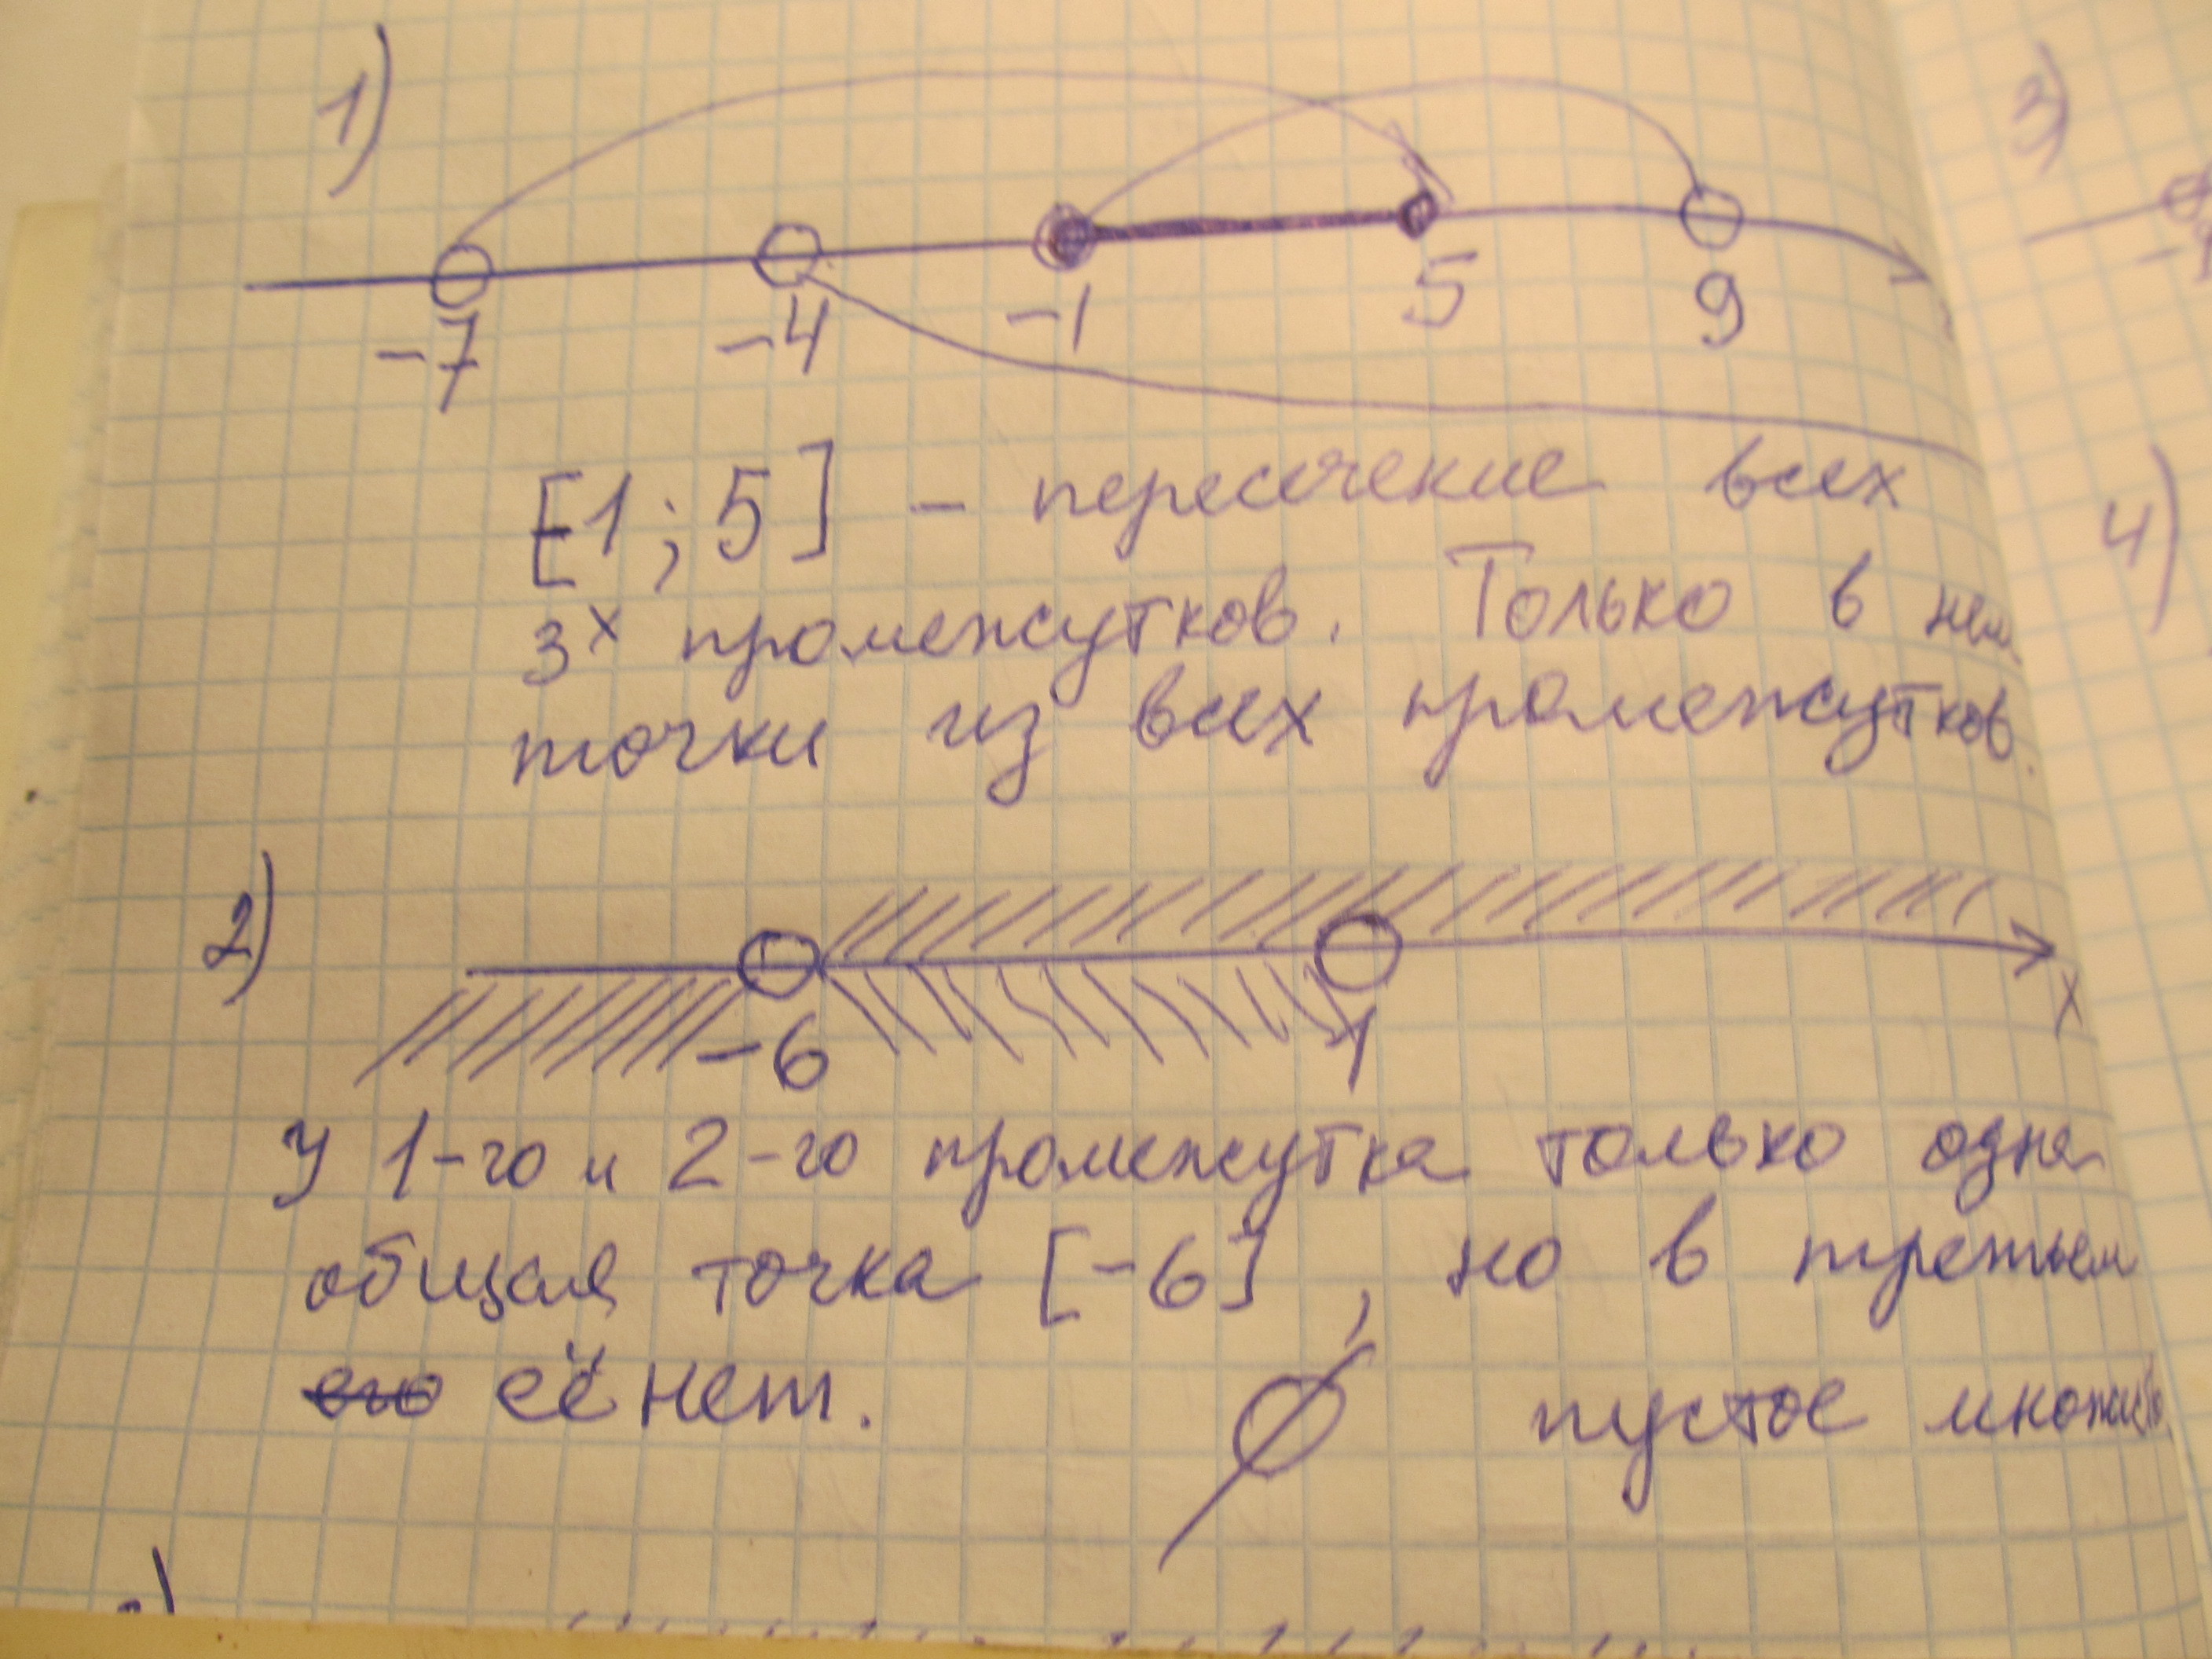 1)
-7 -4 -1 5 9
[-1; 5] - пересечение всех
3х промежутков. Только в нем
точки из всех промежутков.
2)
-6 1 x
У 1-го и 2-го промежутка только одна
общая точка [-6], но в третьем
её нет. ∅ пустое
3)
4)